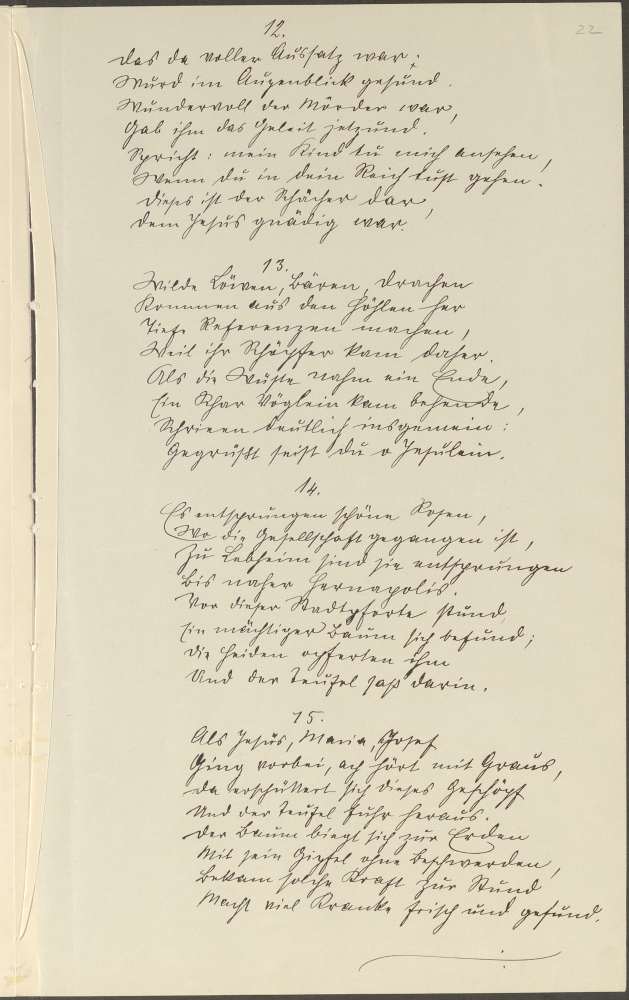 22
12.
Das da voller Aussatz war;
Wurd im Augenblick gesund.
Wundervoll der Mörder war,
Gab ihm das Geleit jetzund.
Spricht: mein Kind tu mich ansehen,
Wenn du in dein Reich tust gehen.
Dieses ist der Schächer dar,
Dem Jesus gnädig war.
13.
Wilde Löwen, Bären, Drachen
Kommen aus den Höhlen her
Tiefe Referenzen machen,
Weil ihr Schöpfer kam daher.
Als die Wüste nahm ein Ende,
Ein Schar Vöglein kam behende,
Schrieen deutlich insgemein:
Gegrüßt seist du o Jesulein.
14.
Es entsprungen schöne Rosen,
Wo die Gesellschaft gegangen ist,
Zu Lebheim sind sie entsprungen
Bis naher Hernapolis.
Vor dieser Stadtpforte stund,
Ein mächtiger Baum sich befund;
Die Heiden opferten ihm
Und der Teufel saß darin.
15.
Als Jesus, Maria, Josef
Ging vorbei, ach hört mit Graus,
Da erschüttert sich dieses Geschöpf
Und der Teufel fuhr heraus.
Der Baum biegt sich zur Erden
Mit sein Gipfel ohne Beschwerden,
Bekam solche Kraft zur Stund
Macht viel Kranke frisch und gesund.